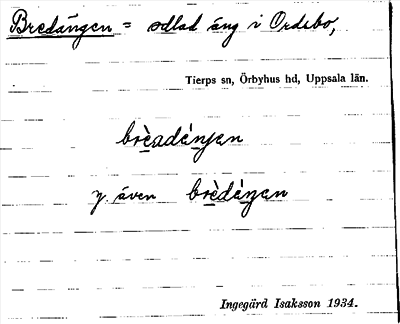 Bredängen = odlad äng i Ordsbo,
Tierps sn, Örbyhus hd, Uppsala län.
brèadènjen
y. även brèdèngen
Ingegärd Isaksson 1934.